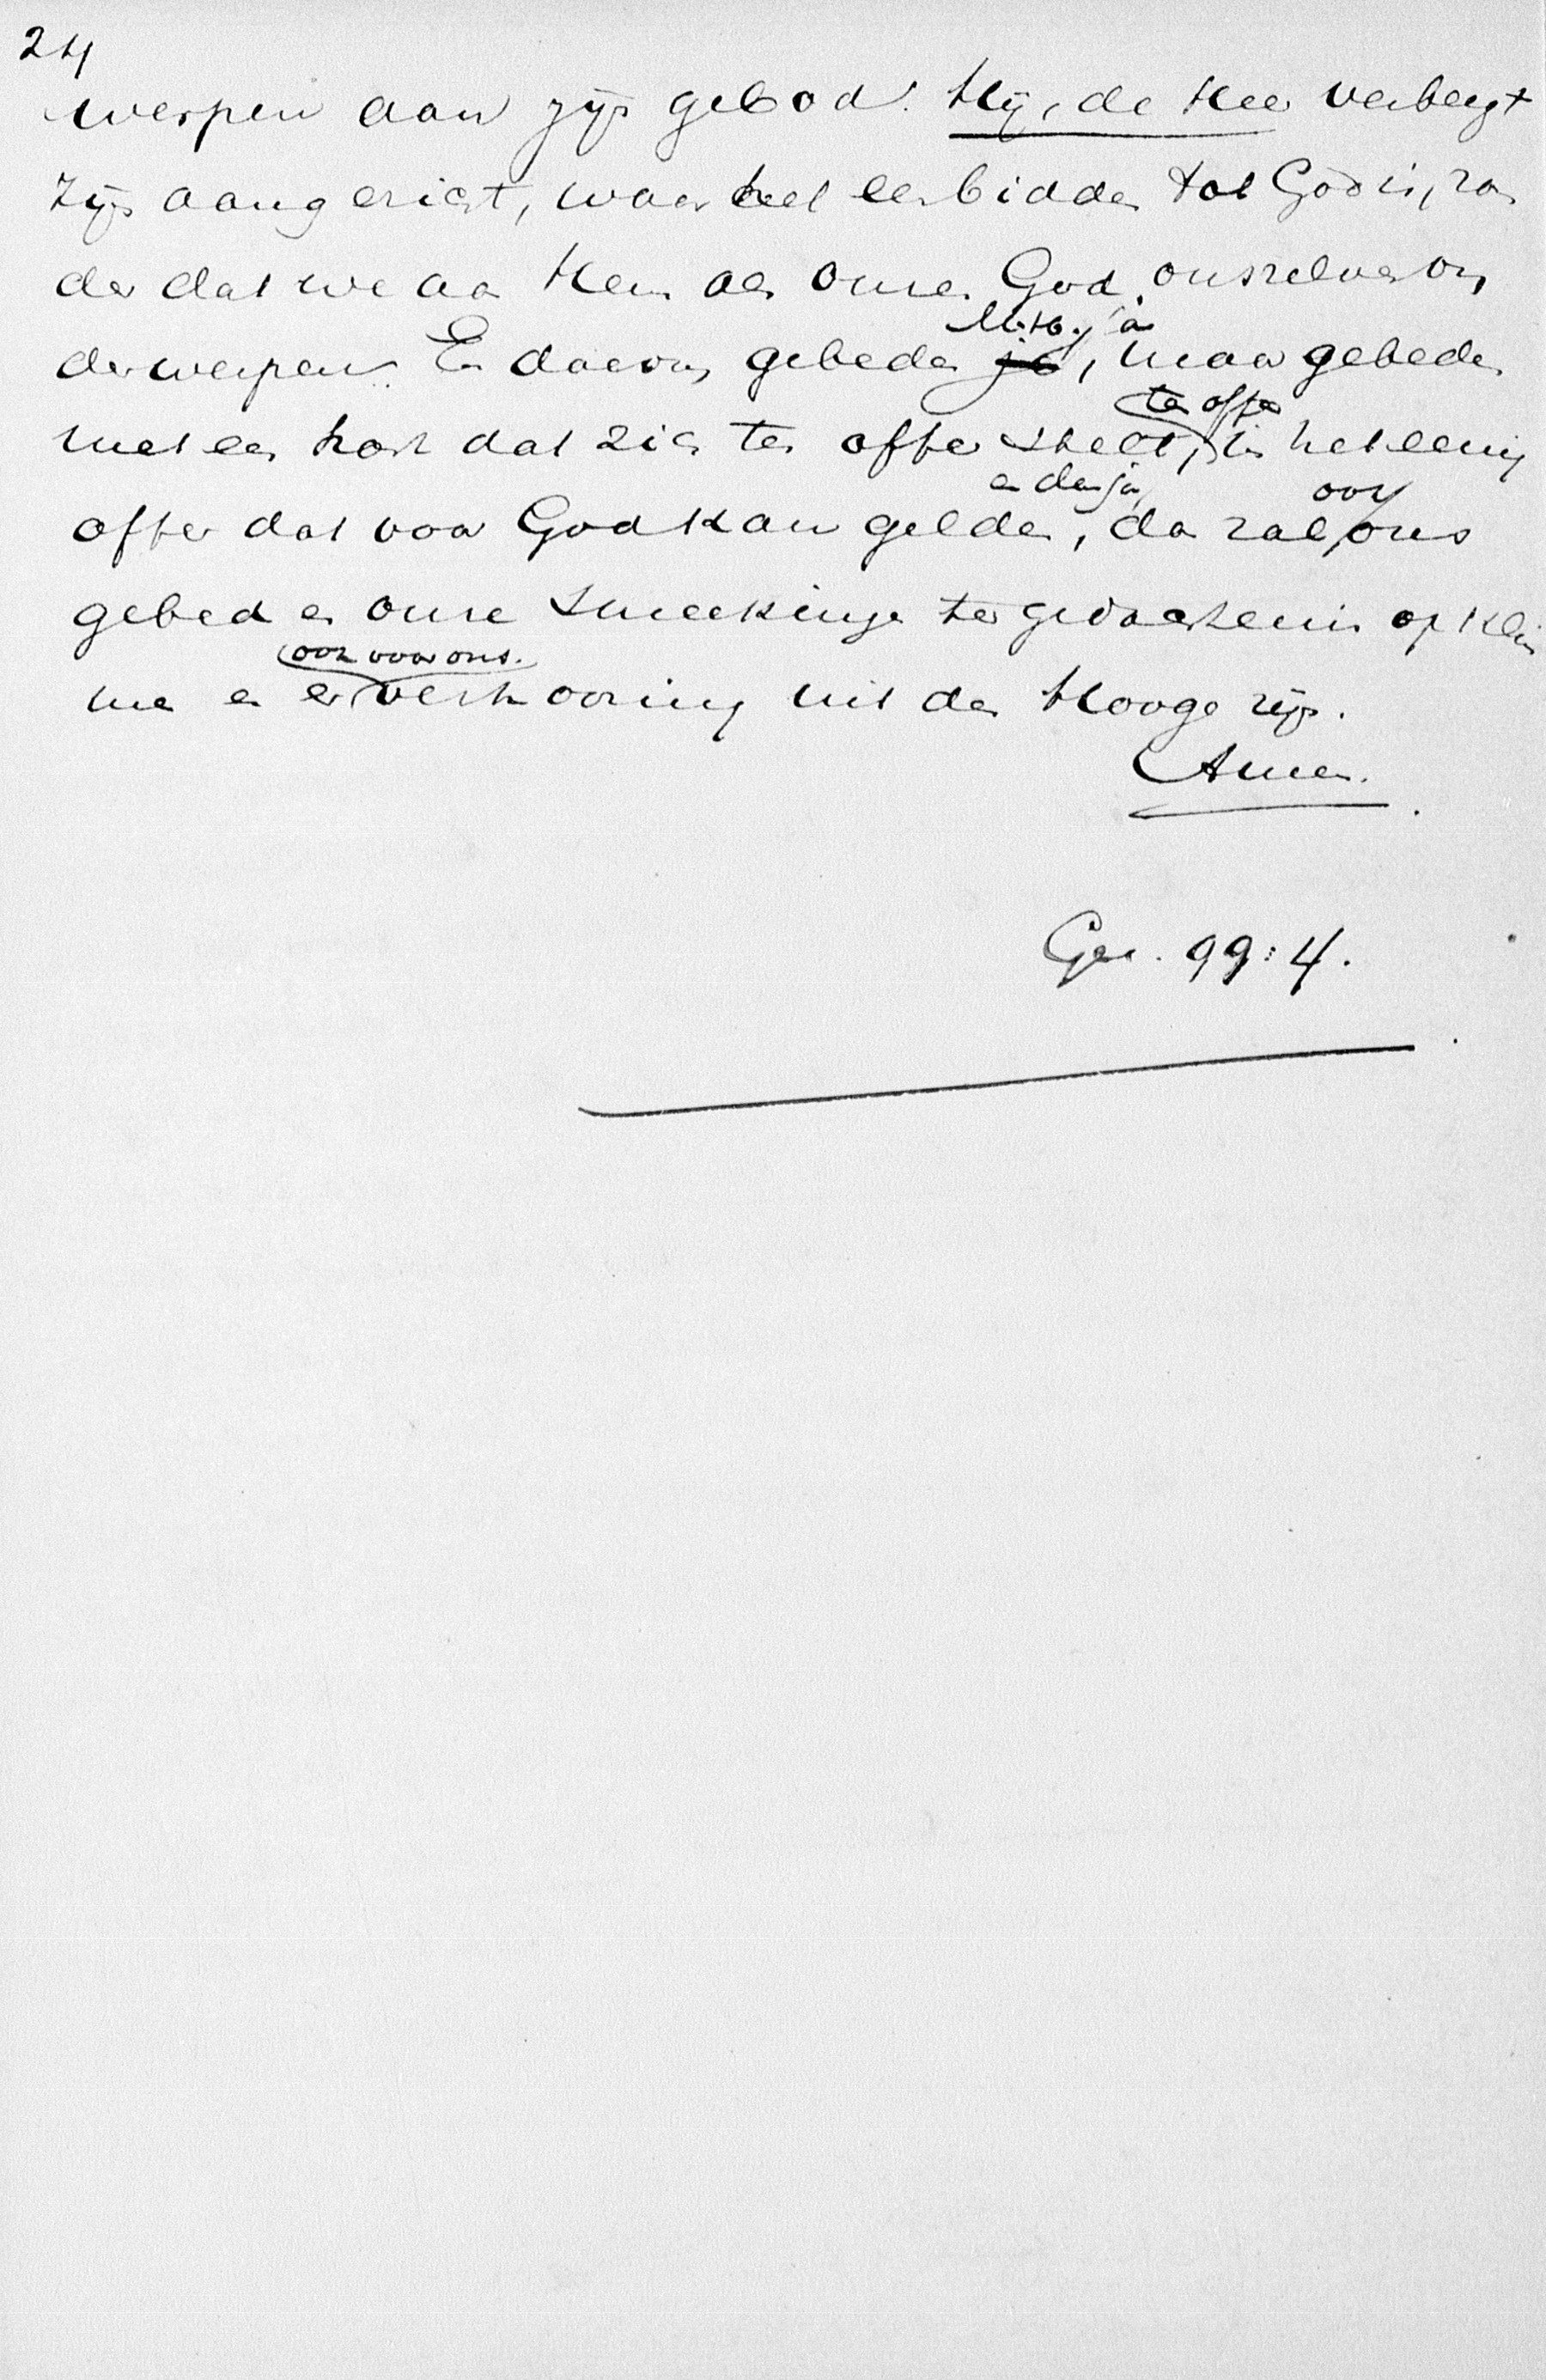 24
werpen aan zijn gebod. Hij, de Heer verbergt
zijn aangezicht, waar het een bidden tot God is, zon
der dat we aan Hem als onze God onszelven on
derwerpen. En daarom gebeden ja, maar gebeden
M. H. ja
met een hart dat zich ten offer stelt, in het eenig
ten offer
offer dat voor God kan gelden, dan zal ons
en dan ja, ook
gebed en onze smeekingen ter gedachtenis opklim
men en er verhooring uit den Hooge zijn.
ook voor ons.
Amen.
Gez. 99:4.